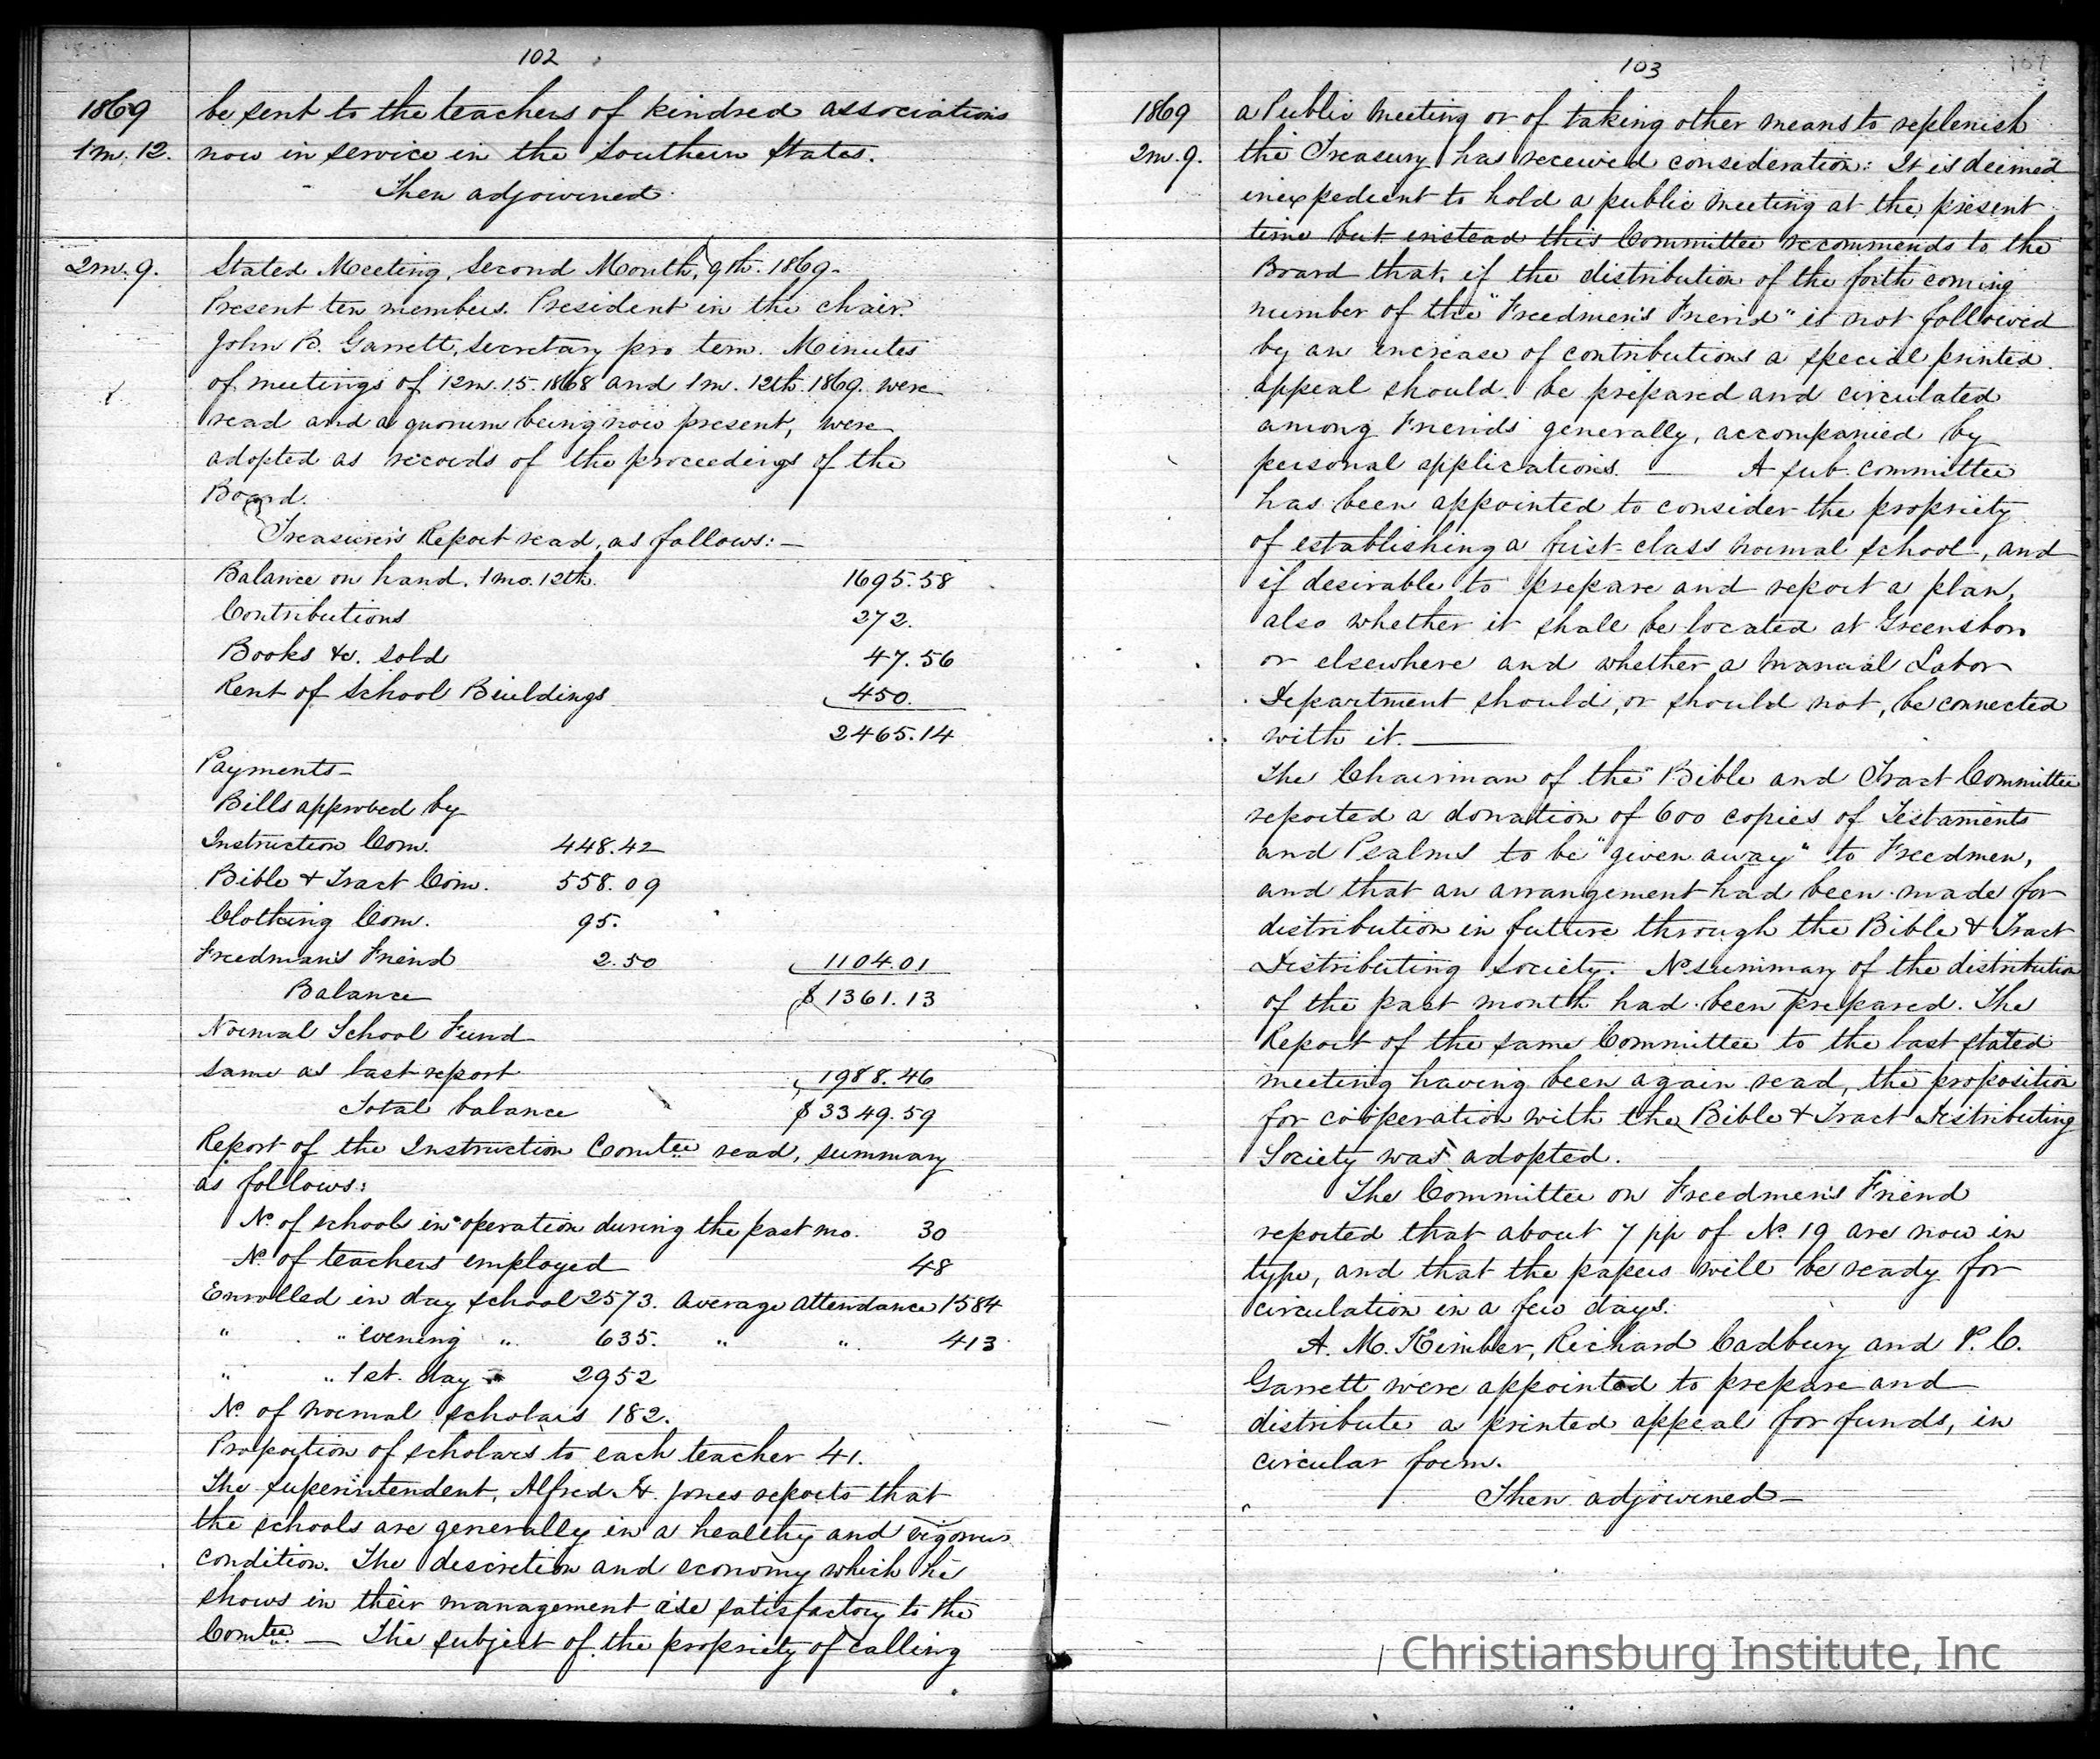 102
1869 be sent to the teachers of kindred associations
1m. 12. now in service in the Southern States.
Then adjourned
2m. 9. Stated Meeting, Second Month, 9th. 1869.
Present ten members. President in the chair.
John B. Garrett, Secretary pro tem. Minutes
of meetings of 12m. 15. 1868 and 1m. 12th. 1869. were
read and a quorum being now present, were
adopted as records of the proceedings of the
Board.
Treasurer's Report read, as follows: —
Balance on hand. 1mo. 12th. 1695.58
Contributions 272.
Books &c. sold 47.56
Rent of School Buildings 450.
2465.14
Payments—
Bills approved by
Instruction Com. 448.42
Bible & Tract Com. 558.09
Clothing Com. 95.
Freedman's Friend 2.50 1104.01
Balance $1361.13
Normal School Fund
same as last report 1988.46
Total balance $3349.59
Report of the Instruction Comtee read, summary
as follows:
No. of schools in operation during the past mo. 30
No. of teachers employed 48
Enrolled in day school 2573. Average Attendance 1584
" " evening " 635. " " 413
" " 1st. day " 2952
No. of normal scholars 182.
Proportion of scholars to each teacher 41.
The Superintendent, Alfred H. Jones reports that
the schools are generally in a healthy and vigorous
condition. The discretion and economy which he
shows in their management are satisfactory to the
Comtee. — The subject of the propriety of calling
103
1869 a Public Meeting or of taking other means to replenish
2m. 9. the Treasury has received consideration: It is deemed
inexpedient to hold a public meeting at the present
time but instead this Committee recommends to the
Board that, if the distribution of the forth coming
number of the "Freedmen's Friend" is not followed
by an increase of contributions a special printed
appeal should be prepared and circulated
among Friends generally, accompanied by
personal applications. — A sub. committee
has been appointed to consider the propriety
of establishing a first-class normal school, and
if desirable to prepare and report a plan,
also whether it shall be located at Greensboro
or elsewhere and whether a Manual Labor
Department should, or should not, be connected
with it. —
The Chairman of the Bible and Tract Committee
reported a donation of 600 copies of Testaments
and Psalms to be "given away" to Freedmen,
and that an arrangement had been made for
distribution in future through the Bible & Tract
Distributing Society. No summary of the distribution
of the past month had been prepared. The
Report of the same Committee to the last stated
meeting having been again read, the proposition
for cooperation with the Bible & Tract Distributing
Society was adopted.
The Committee on Freedmen's Friend
reported that about 7 pp of No. 19 are now in
type, and that the papers will be ready for
circulation in a few days.
A. M. Kimber, Richard Cadbury and P. C.
Garrett were appointed to prepare and
distribute a printed appeal for funds, in
circular form.
Then adjourned —
Christiansburg Institute, Inc